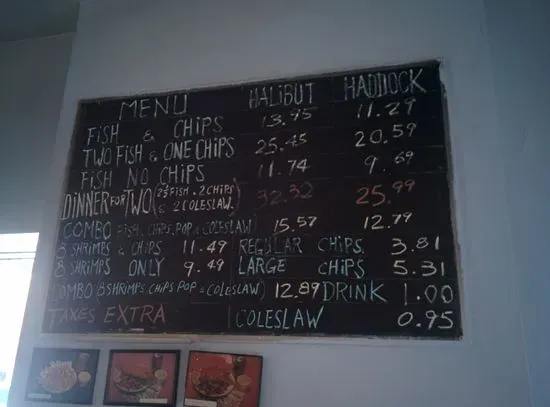 MENU HALIBUT HADDOCK
FISH & CHIPS 13.95 11.29
TWO FISH & ONE CHIPS 25.45 20.59
FISH NO CHIPS 11.74 9.69
DINNER FOR TWO (2½ FISH . 2 CHIPS & 2 COLESLAW.) 32.32 25.99
COMBO FISH, CHIPS, POP & COLESLAW) 15.57 12.79
8 SHRIMPS & CHIPS 11.49 REGULAR CHIPS 3.81
8 SHRIMPS ONLY 9.49 LARGE CHIPS 5.31
COMBO 8 SHRIMPS. CHIPS POP & COLESLAW) 12.89 DRINK 1.00
TAXES EXTRA COLESLAW 0.95